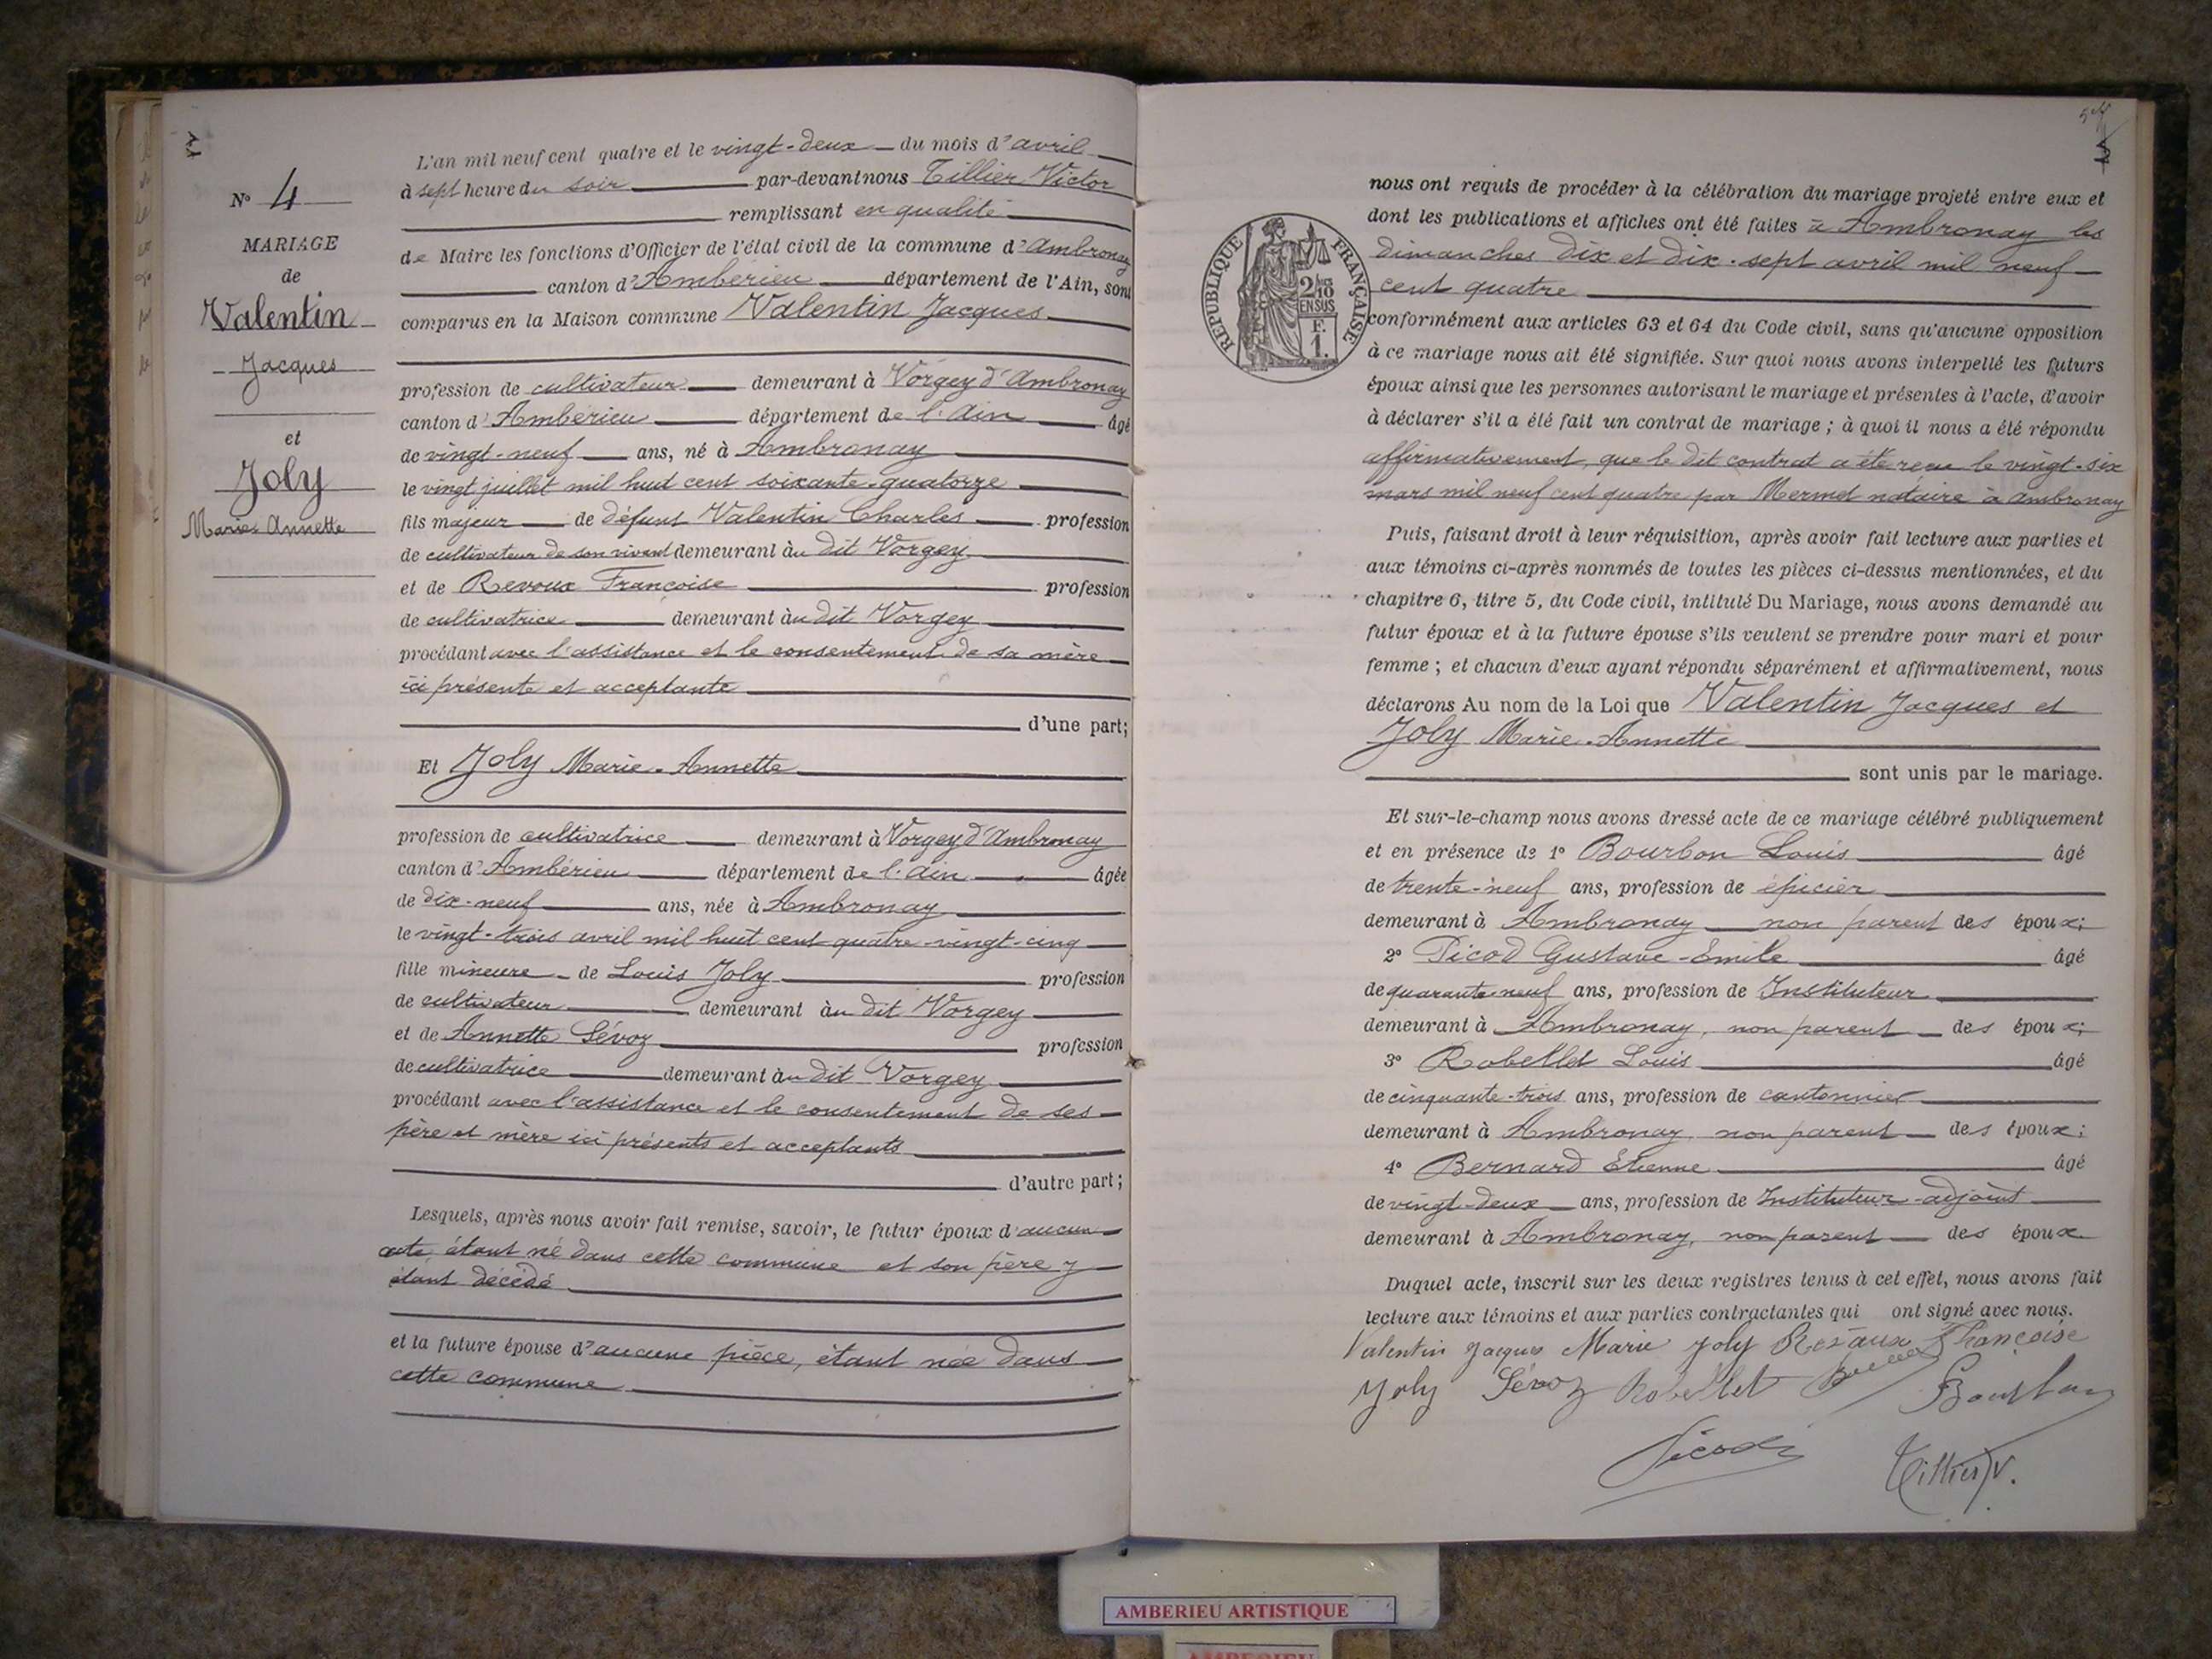 N° 4
MARIAGE
de
Valentin
Jacques
et
Joly
Marie Annette
L'an mil neuf cent quatre et le vingt-deux du mois d'avril
à sept heure du soir par-devant nous Tillier Victor
remplissant en qualité
de Maire les fonctions d'Officier de l'état civil de la commune d'Ambronay
canton d'Ambérieu département de l'Ain, sont
comparus en la Maison commune Valentin Jacques
profession de cultivateur demeurant à Vorgey d'Ambronay
canton d'Ambérieu département de l'Ain âgé
de vingt-neuf ans, né à Ambronay
le vingt juillet mil huit cent soixante-quatorze
fils majeur de défunt Valentin Charles profession
de cultivateur de son vivant demeurant au dit Vorgey
et de Revoux Françoise profession
de cultivatrice demeurant au dit Vorgey
procédant avec l'assistance et le consentement de sa mère
ici présente et acceptante
d'une part;
Et Joly Marie-Annette
profession de cultivatrice demeurant à Vorgey d'Ambronay
canton d'Ambérieu département de l'Ain âgée
de dix-neuf ans, née à Ambronay
le vingt-trois avril mil huit cent quatre-vingt-cinq
fille mineure de Louis Joly profession
de cultivateur demeurant au dit Vorgey
et de Annette Sévoz profession
de cultivatrice demeurant au dit Vorgey
procédant avec l'assistance et le consentement de ses
père et mère ici présents et acceptants
d'autre part;
Lesquels, après nous avoir fait remise, savoir, le futur époux d'aucun
acte, étant né dans cette commune et son père y
étant décédé
et la future épouse d'aucune pièce, étant née dans
cette commune
nous ont requis de procéder à la célébration du mariage projeté entre eux et
dont les publications et affiches ont été faites à Ambronay les
dimanches dix et dix-sept avril mil neuf
cent quatre
RÉPUBLIQUE FRANÇAISE
2/10
EN SUS
F.
1.
conformément aux articles 63 et 64 du Code civil, sans qu'aucune opposition
à ce mariage nous ait été signifiée. Sur quoi nous avons interpellé les futurs
époux ainsi que les personnes autorisant le mariage et présentes à l'acte, d'avoir
à déclarer s'il a été fait un contrat de mariage ; à quoi il nous a été répondu
affirmativement, que le dit contrat a été reçu le vingt-six
mars mil neuf cent quatre par Mermet notaire à Ambronay
Puis, faisant droit à leur réquisition, après avoir fait lecture aux parties et
aux témoins ci-après nommés de toutes les pièces ci-dessus mentionnées, et du
chapitre 6, titre 5, du Code civil, intitulé Du Mariage, nous avons demandé au
futur époux et à la future épouse s'ils veulent se prendre pour mari et pour
femme ; et chacun d'eux ayant répondu séparément et affirmativement, nous
déclarons Au nom de la Loi que Valentin Jacques et
Joly Marie-Annette
sont unis par le mariage.
Et sur-le-champ nous avons dressé acte de ce mariage célébré publiquement
et en présence de 1° Bourbon Louis âgé
de trente-neuf ans, profession de épicier
demeurant à Ambronay non parent des époux;
2° Picod Gustave-Emile âgé
de quarante-neuf ans, profession de Instituteur
demeurant à Ambronay, non parent des époux;
3° Robellet Louis âgé
de cinquante-trois ans, profession de cantonnier
demeurant à Ambronay non parent des époux;
4° Bernard Etienne âgé
de vingt-deux ans, profession de Instituteur-adjoint
demeurant à Ambronay, non parent des époux
Duquel acte, inscrit sur les deux registres tenus à cet effet, nous avons fait
lecture aux témoins et aux parties contractantes qui ont signé avec nous.
Valentin Jacques Marie Joly Revoux Françoise
Joly Sévoz Robellet Bourbon
Picod Tillier V.
AMBERIEU ARTISTIQUE
AMBERIEU